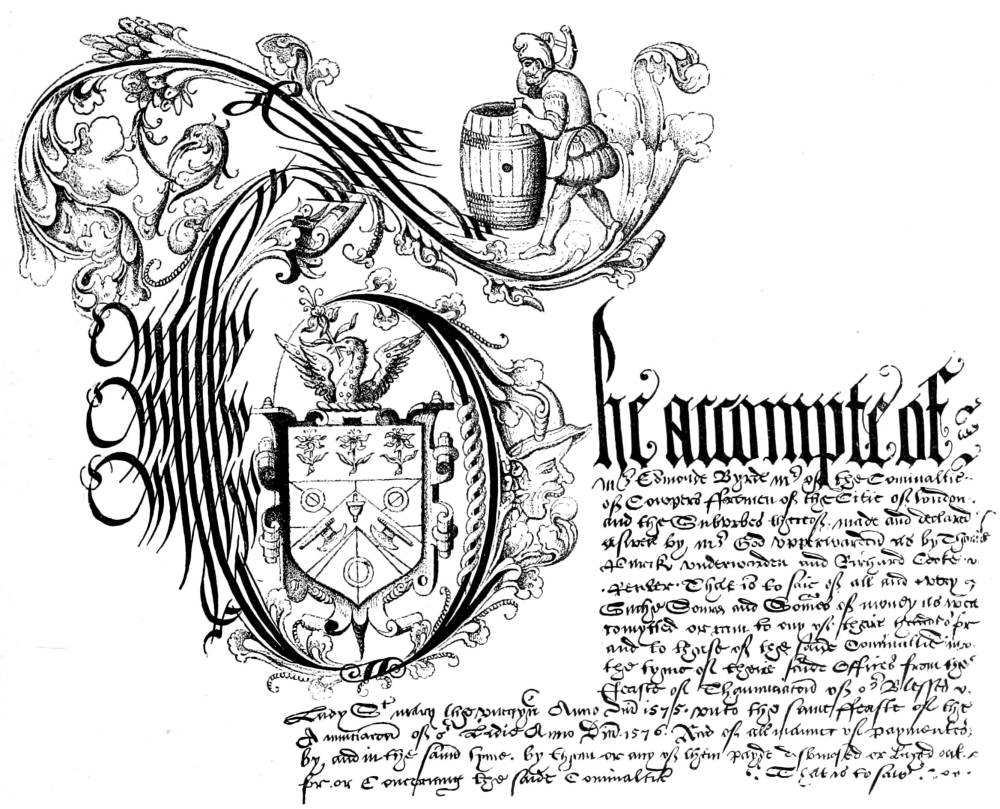 The accompte of
Mr Edmonde Byrde Mr of the Cominaltie
of Cowpers ffremen of the Citie of london
and the Suburbes thereof made and declared
aswell by Mr God vpperwarden as by Thomas
vnderwarden and Richard Cooke
Renter That is to saie of all and every
Suche Somes and Somes of money as were
comytted or cam to any of their
and to those of the saide Cominaltie
the tyme of theire saide Offices from the
ffeaste of Thanunciacon of or Blessed
Lady St Mary the virgyn Anno Dni 1575 vnto the same ffeaste of the
Anunciacon of or Ladie Anno Dni 1576 And of all manner of paymentes
by and in the same tyme by them or any of them payde disbursed or layed out
for or Concerning the saide Cominaltie That is to saie